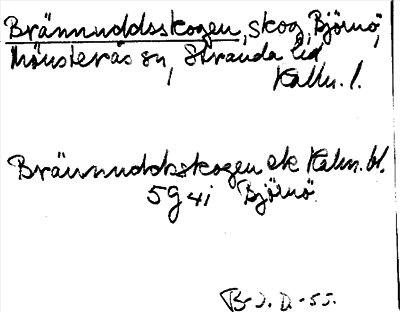 Brännuddsskogen, skog, Björnö,
Mönsterås sn, Stranda hd
Kalm. l.
Brännuddskogen ek Kalm. bl.
5g4i Björnö
B-J. D. -55.